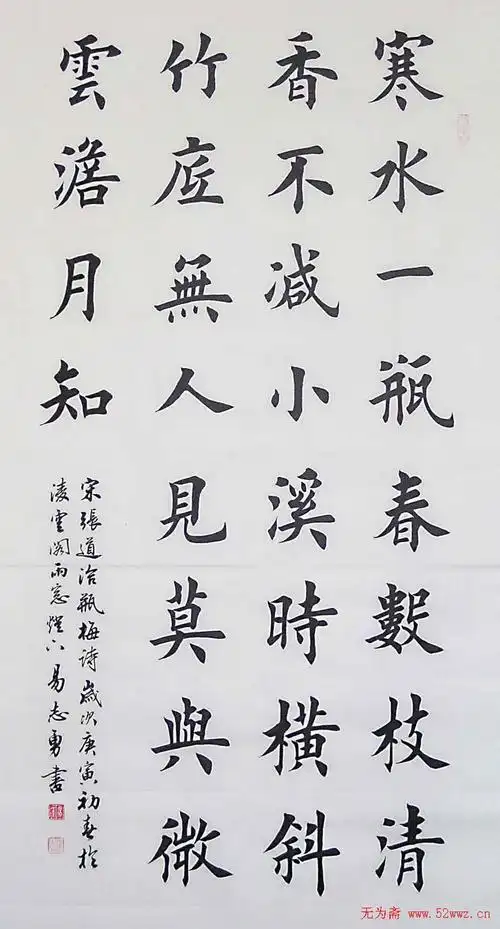 寒水一瓶春數枝清
香不減小溪時橫斜
竹底無人見莫與微
雲澹月知
宋張道洽瓶梅詩歲次庚寅初春於
淩雲閣雨窓燈下易志勇書
无为斋 www.52wwz.cn